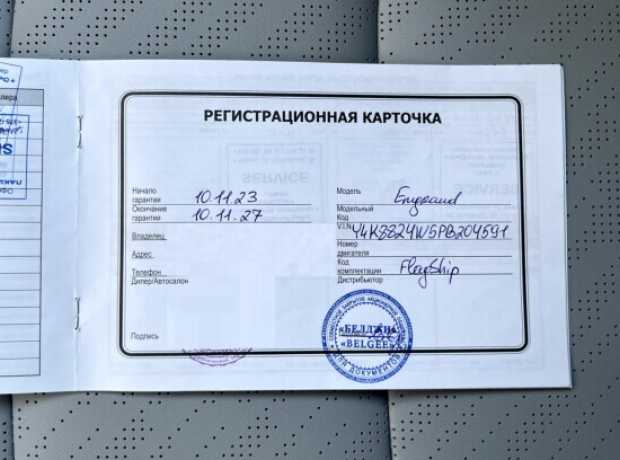 РЕГИСТРАЦИОННАЯ КАРТОЧКА
Начало гарантии 10.11.23
Окончание гарантии 10.11.27
Владелец
Адрес
Телефон
Дилер/Автосалон
Подпись
Модель Emgrand
Модельный Код
V.I.N. Y4K8824W5PB204591
Номер двигателя
Код комплектации FlagShip
Дистрибьютор
«БЕЛДЖИ»
«BELGEE»
ДЛЯ ДОКУМЕНТОВ